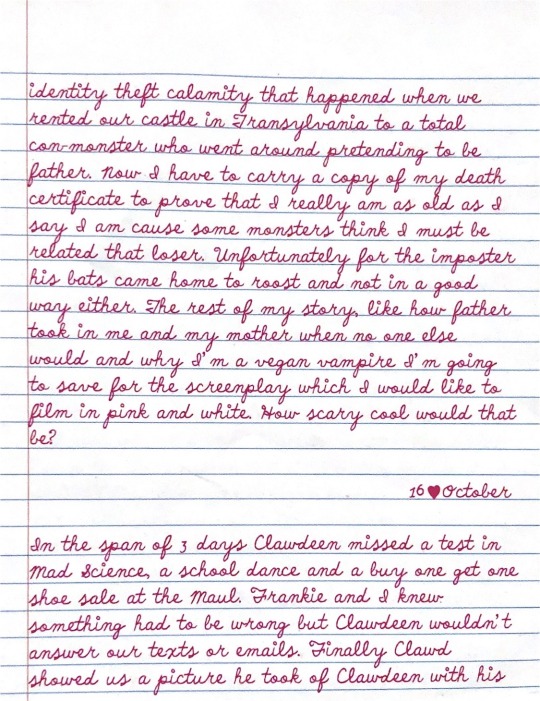 identity theft calamity that happened when we
rented our castle in Transylvania to a total
con-monster who went around pretending to be
father. Now I have to carry a copy of my death
certificate to prove that I really am as old as I
say I am cause some monsters think I must be
related that loser. Unfortunately for the imposter
his bats came home to roost and not in a good
way either. The rest of my story, like how father
took in me and my mother when no one else
would and why I'm a vegan vampire I'm going
to save for the screenplay which I would like to
film in pink and white. How scary cool would that
be?
16 ♥ October
In the span of 3 days Clawdeen missed a test in
Mad Science, a school dance and a buy one get one
shoe sale at the Maul. Frankie and I knew
something had to be wrong but Clawdeen wouldn't
answer our texts or emails. Finally Clawd
showed us a picture he took of Clawdeen with his